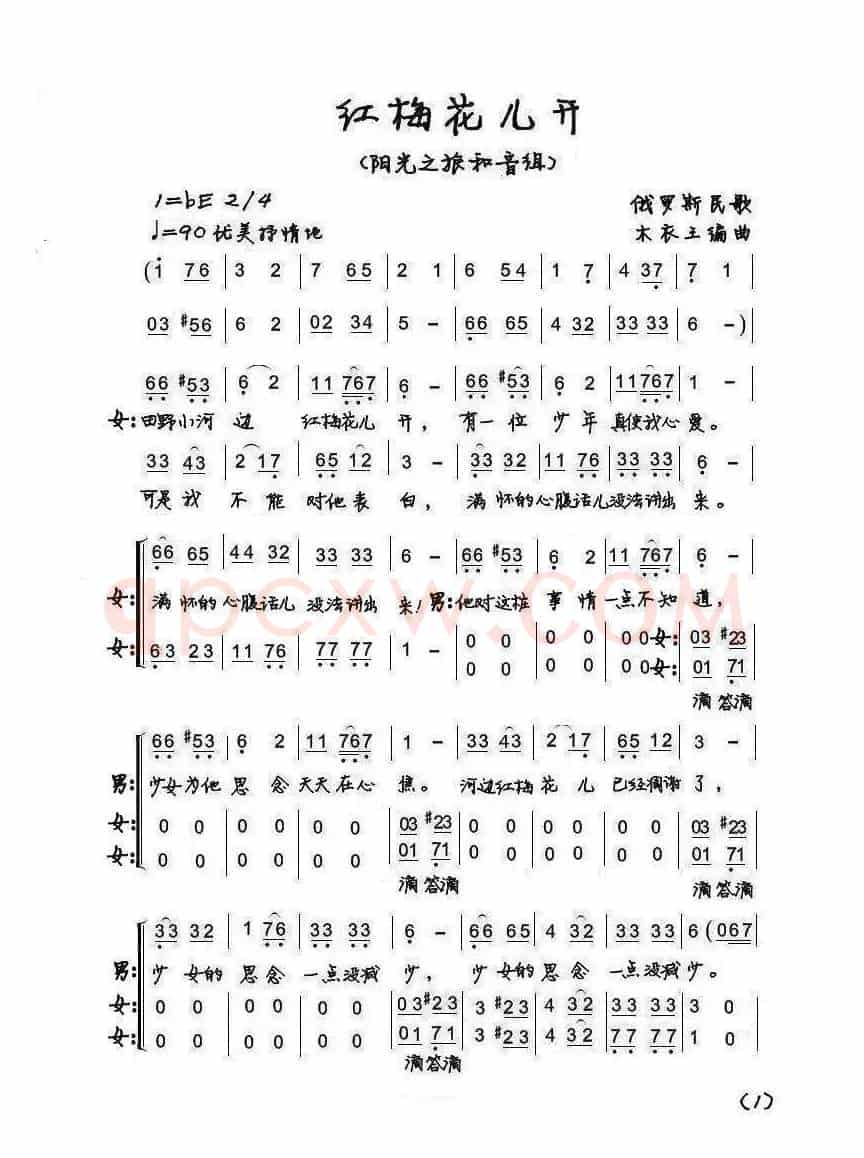 红梅花儿开
(阳光之旅和音组)
1=bE 2/4 俄罗斯民歌
♩=90 优美抒情地 木衣主编曲
(i 76 | 3 2 | 7 65 | 2 1 | 6 54 | 1 7 | 4 37 | 7 1
03 #56 | 6 2 | 02 34 | 5 - | 66 65 | 4 32 | 33 33 | 6 -)
66 #53 | 6 2 | 11 767 | 6 - | 66 #53 | 6 2 | 11 767 | 1 -
女:田野小河 边 红梅花儿 开,有一位 少年 真使我心 爱。
33 43 | 2 17 | 65 12 | 3 - | 33 32 | 11 76 | 33 33 | 6 -
可是我 不能 对他表 白,满怀的心腹话儿没法讲出 来。
66 65 | 44 32 | 33 33 | 6 - | 66 #53 | 6 2 | 11 767 | 6 -
女:满怀的心腹话儿 没法讲出 来!男:他对这桩 事情一点不知 道,
女:63 23 | 11 76 | 77 77 | 1 - | 0 0 | 0 0 | 0 0 女:| 03 #23
0 0 | 0 0 | 0 0 女:| 01 71
滴答滴
66 #53 | 6 2 | 11 767 | 1 - | 33 43 | 2 17 | 65 12 | 3 -
男:少女为他 思念 天天在心 焦。河边红梅 花儿 已经凋谢 了,
女:0 0 | 0 0 | 0 0 | 03 #23 | 0 0 | 0 0 | 0 0 | 03 #23
女:0 0 | 0 0 | 0 0 | 01 71 | 0 0 | 0 0 | 0 0 | 01 71
滴答滴 滴答滴
33 32 | 1 76 | 33 33 | 6 - | 66 65 | 4 32 | 33 33 | 6 (067
男:少女的 思念 一点没减 少,少女的 思念 一点没减少。
女:0 0 | 0 0 | 0 0 | 03 #23 | 3 #23 | 4 32 | 33 33 | 3 0
女:0 0 | 0 0 | 0 0 | 01 71 | 3 #23 | 4 32 | 77 77 | 1 0
滴答滴
(1)
qpcxw.com